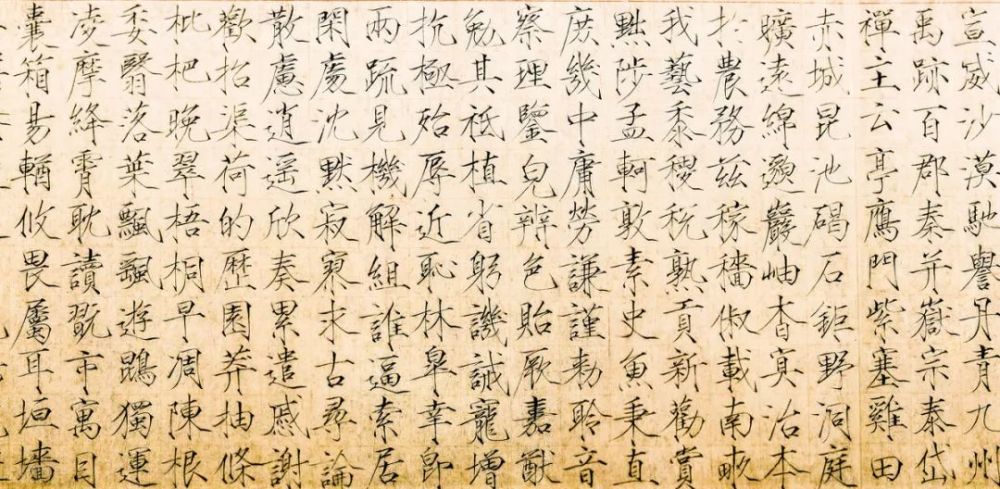 宣威沙漠馳譽丹青九州
禹跡百郡秦并嶽宗泰岱
禪主云亭鴈門紫塞雞田
赤城昆池碣石鉅野洞庭
曠遠綿邈巖岫杳冥治本
於農務茲稼穡俶載南畝
我藝黍稷稅熟貢新勸賞
黜陟孟軻敦素史魚秉直
庶幾中庸勞謙謹勑聆音
察理鑒皃辨色貽厥嘉猷
勉其祗植省躬譏誡寵增
抗極殆辱近恥林皋幸即
兩疏見機解組誰逼索居
閑處沈默寂寥求古尋論
散慮逍遙欣奏累遣慼謝
歡招渠荷的歷園莽抽條
枇杷晚翠梧桐早凋陳根
委翳落葉飄颻遊鵾獨運
凌摩絳霄耽讀翫市寓目
囊箱易輶攸畏屬耳垣牆